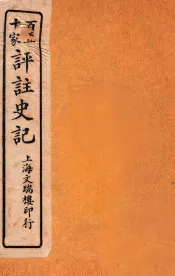 百五十家評註史記
上海文瑞樓印行